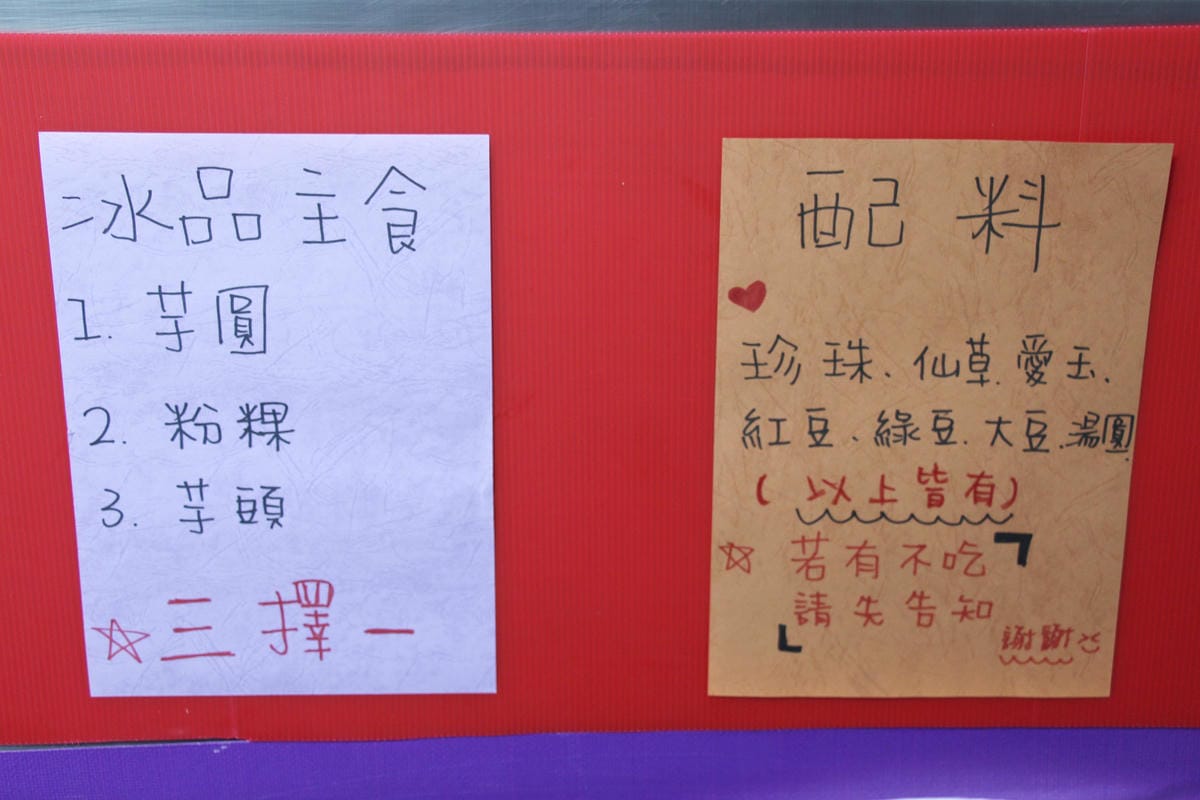 冰品主食
1. 芋圓
2. 粉粿
3. 芋頭
三擇一
配料
珍珠、仙草、愛玉、
紅豆、綠豆、大豆、湯圓
(以上皆有)
若有不吃
請先告知
謝謝